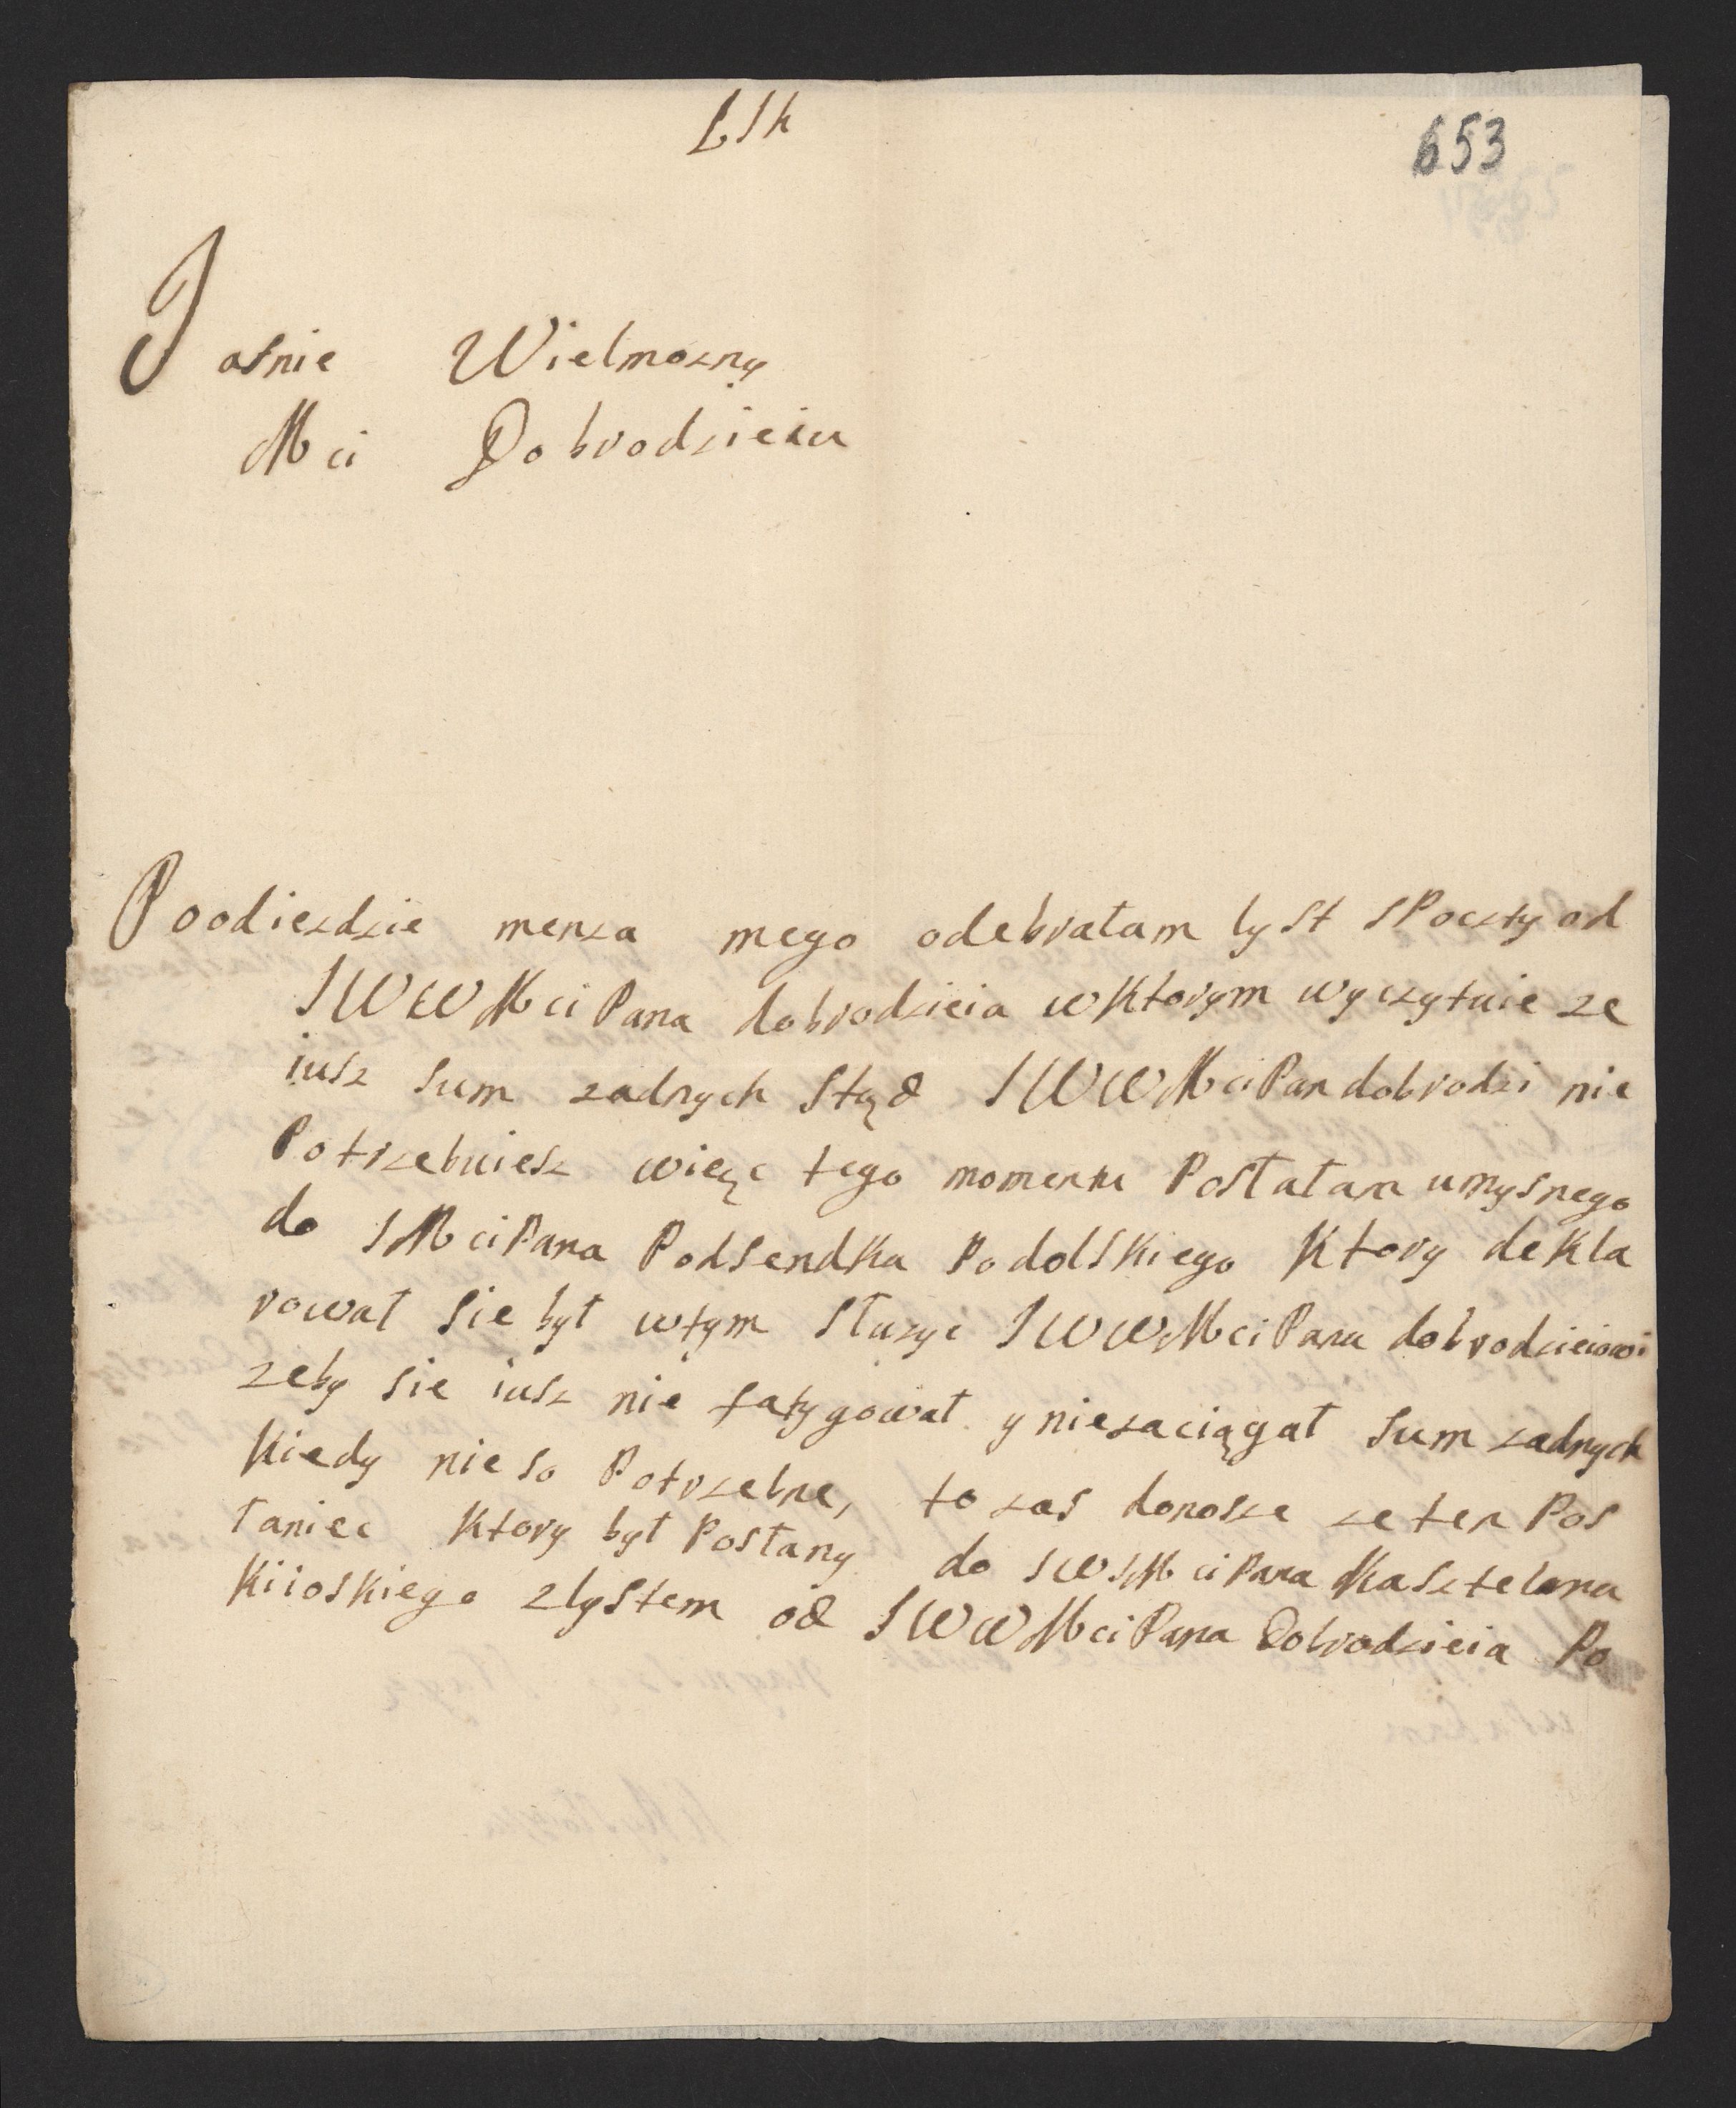 LSk
653
Jasnie Wielmozny
Mci Dobrodzieiu
Poodiezdzie menza mego odebrałam lyst sPoczty od
JWWMciPana dobrodzieia wktorym wyczytuie ze
iusz sum zadnych stąd JWWMciPan dobrodzi nie
Potrzebuiesz więc tego momentu Posłałam umysnego
do JMciPana Podsendka Podolskiego Ktory dekla
rował sie był wtym słuzyc JWWMciPanu dobrodzieiowi
zeby sie iusz nie fatygował y niezaciągał sum zadnych
Kiedy nie so Potrzebne, to zas donosze ze ten Pos
łaniec Ktory był Posłany do JWJMciPana Kasztelana
Kiioskiego zlystem od JWWMciPana Dobrodzieia Po